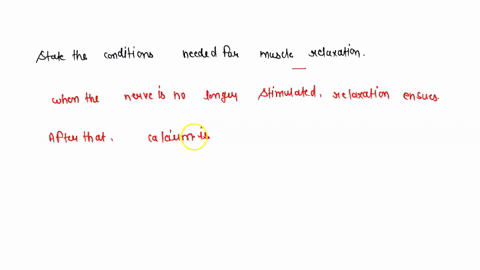 State the conditions needed for muscle relaxation.
when the nerve is no longer stimulated, relaxation ensues
After that, calcium is